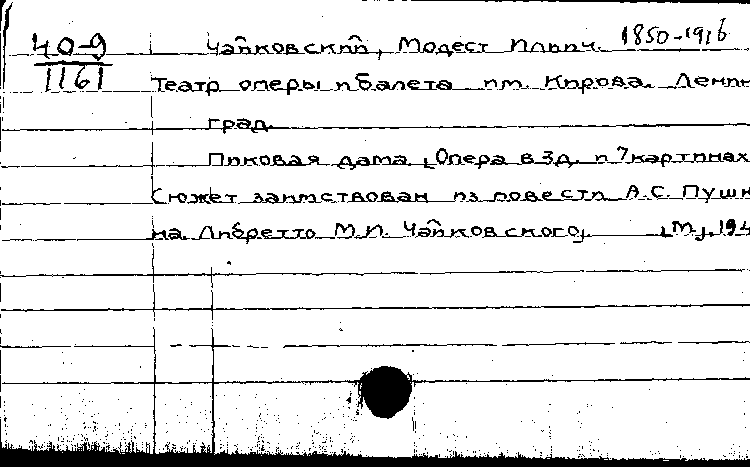 40-9
1161
Чайковский, Модест Ильич. 1850-1916
Театр оперы и балета им. Кирова. Ленин
град.
Пиковая дама. [Опера в 3 д. и 7 картинах
Сюжет заимствован из повести А.С. Пушк
на. Либретто М.И. Чайковского]. [М], 194